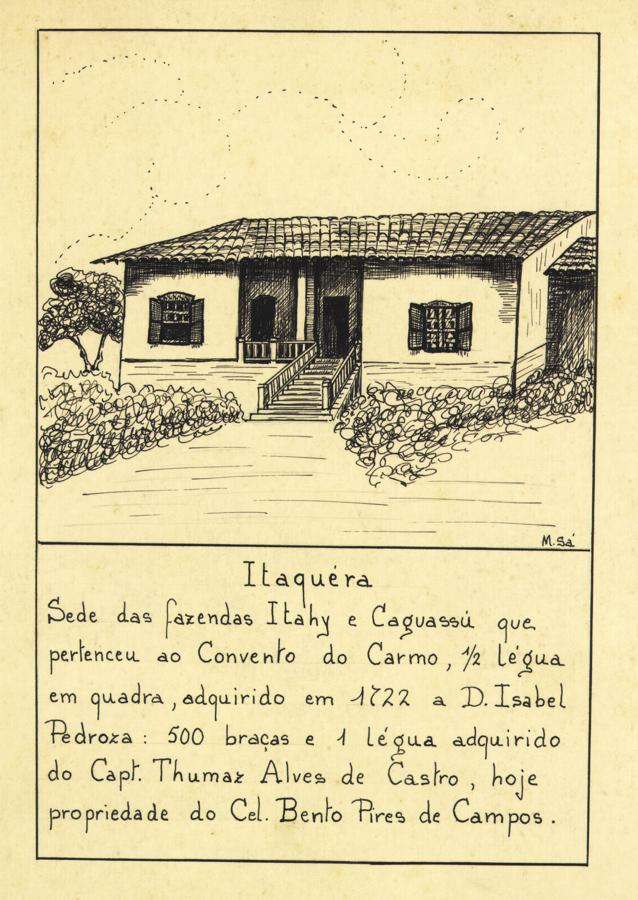 M. Sá
Itaquéra
Sede das fazendas Itahy e Caguassú que
pertenceu ao Convento do Carmo, 1/2 légua
em quadra, adquirido em 1722 a D. Isabel
Pedroza: 500 braças e 1 légua adquirido
do Capt. Thumaz Alves de Castro, hoje
propriedade do Cel. Bento Pires de Campos.